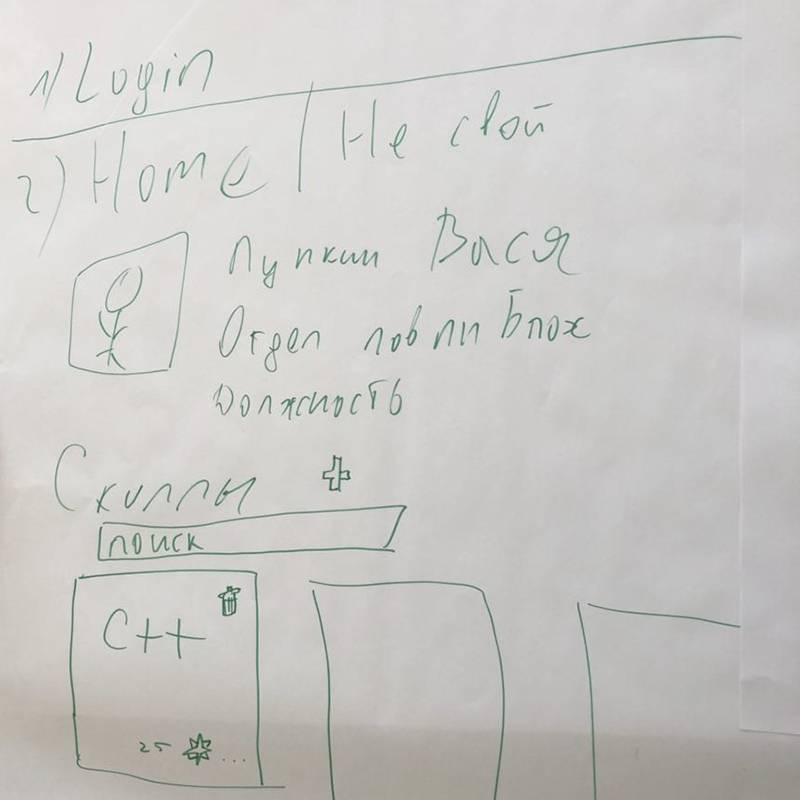 1) Login
2) Home | Не свой
Пупкин Вася
Отдел ловли Блох
Должность
Скиллы +
поиск
C++
25 ...